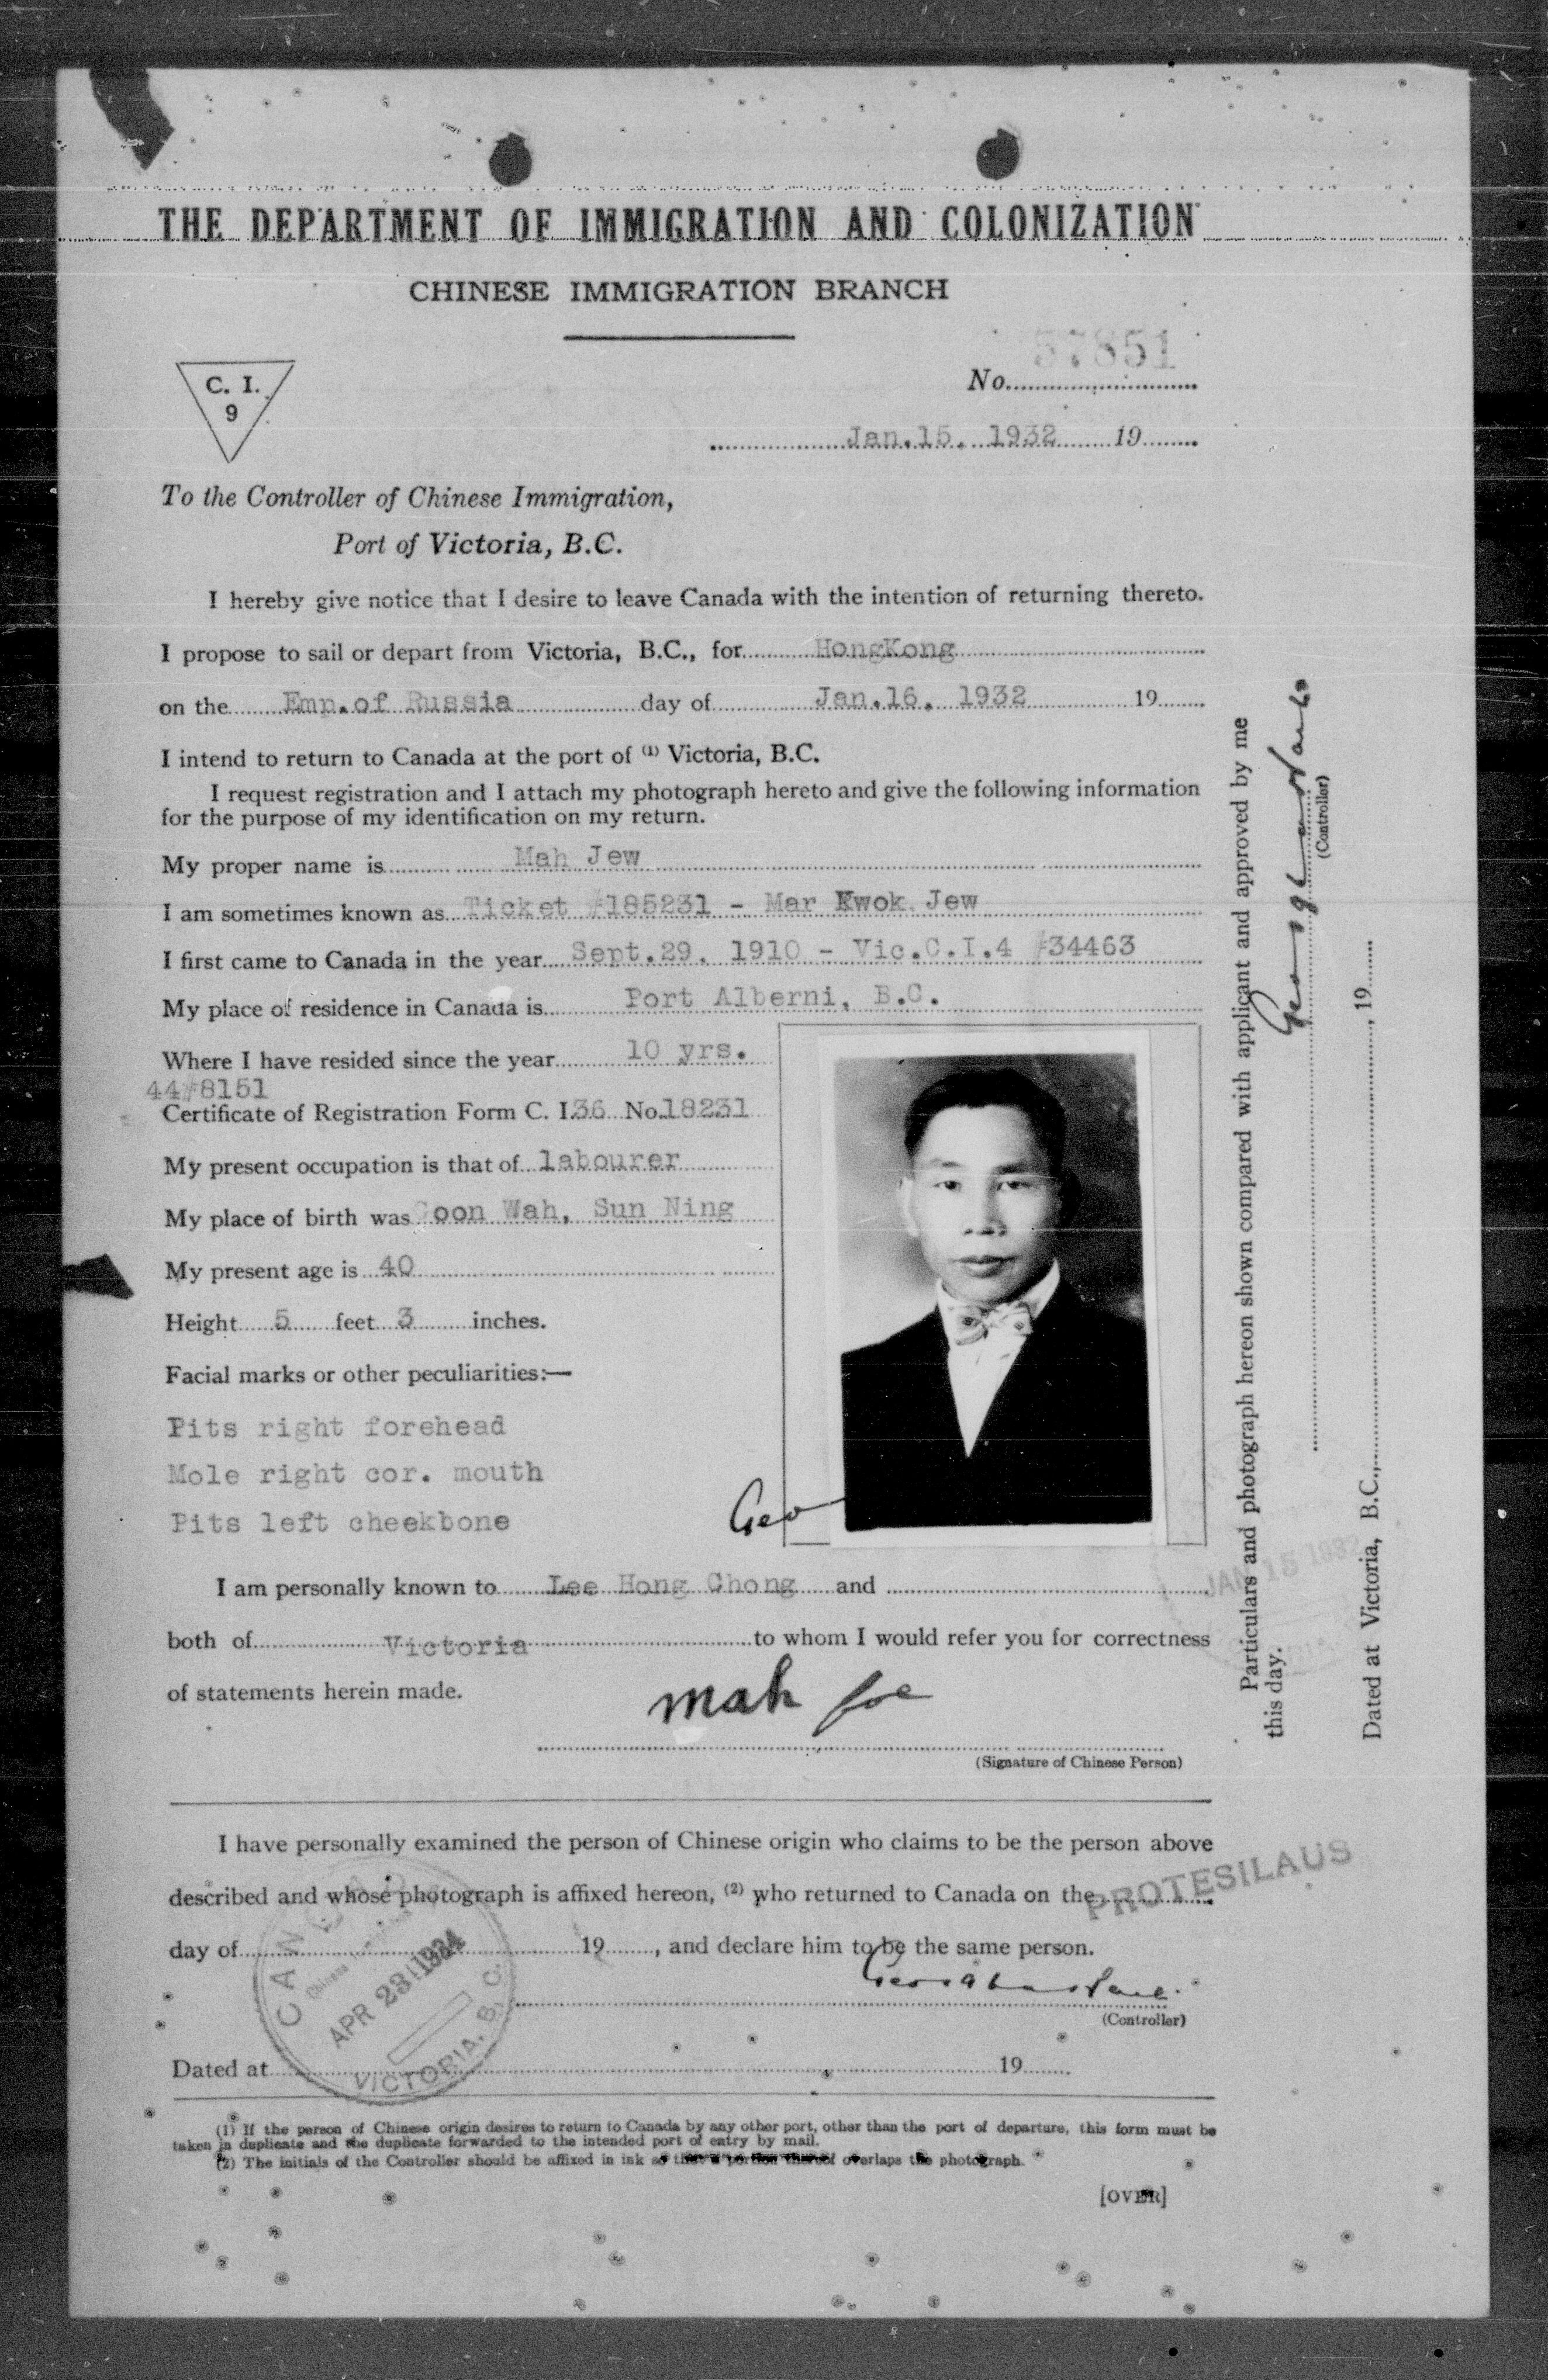 THE DEPARTMENT OF IMMIGRATION AND COLONIZATION
CHINESE IMMIGRATION BRANCH
C. I.
9
No. 57851
Jan.15, 1932 19
To the Controller of Chinese Immigration,
Port of Victoria, B.C.
I hereby give notice that I desire to leave Canada with the intention of returning thereto.
I propose to sail or depart from Victoria, B.C., for HongKong
on the Emp.of Russia day of Jan.16, 1932 19
I intend to return to Canada at the port of (1) Victoria, B.C.
I request registration and I attach my photograph hereto and give the following information
for the purpose of my identification on my return.
My proper name is Mah Jew
I am sometimes known as Ticket #185231 - Mar Kwok Jew
I first came to Canada in the year Sept.29, 1910 - Vic.C.I.4 #34463
My place of residence in Canada is Port Alberni, B.C.
Where I have resided since the year 10 yrs.
44#8151
Certificate of Registration Form C. I.36 No.18231
My present occupation is that of labourer
My place of birth was oon Wah, Sun Ning
My present age is 40
Height 5 feet 3 inches.
Facial marks or other peculiarities:—
Pits right forehead
Mole right cor. mouth
Pits left cheekbone
Geo
I am personally known to Lee Hong Chong and
both of Victoria to whom I would refer you for correctness
of statements herein made.
mah Joe
(Signature of Chinese Person)
I have personally examined the person of Chinese origin who claims to be the person above
described and whose photograph is affixed hereon, (2) who returned to Canada on the
PROTESILAUS
day of 19, and declare him to be the same person.
(Controller)
CANADA
Chinese
APR 23 1934
VICTORIA, B.C.
Dated at 19
(1) If the person of Chinese origin desires to return to Canada by any other port, other than the port of departure, this form must be
taken in duplicate and the duplicate forwarded to the intended port of entry by mail.
(2) The initials of the Controller should be affixed in ink so that a portion thereof overlaps the photograph.
[OVER]
Particulars and photograph hereon shown compared with applicant and approved by me
this day.
(Controller)
Dated at Victoria, B.C., 19
JAN 15 1932